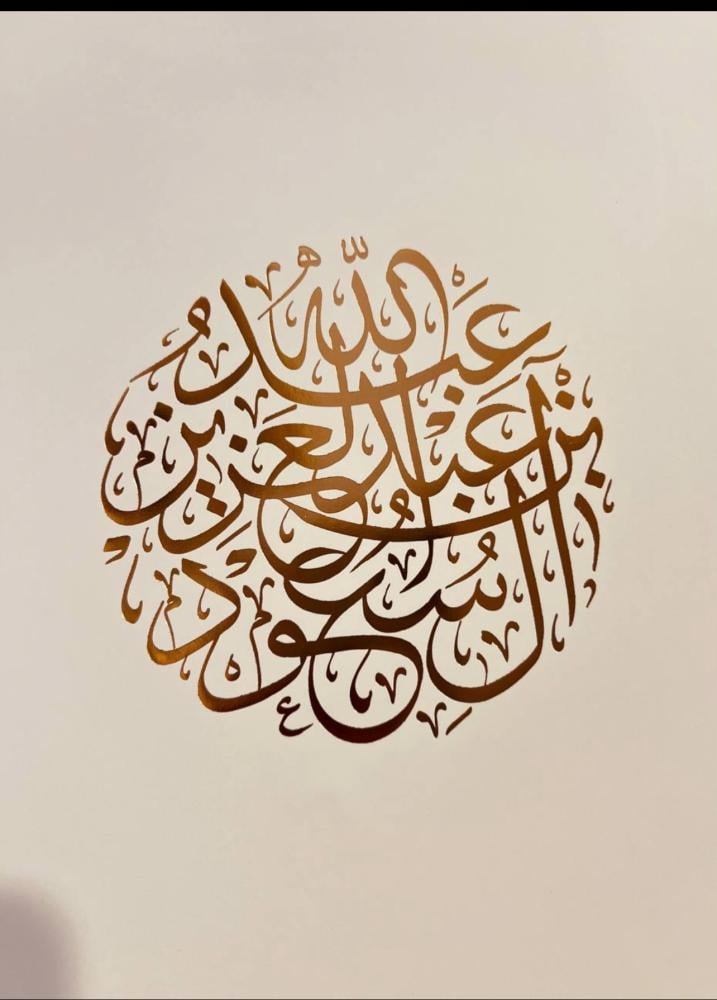 عبد الله
بن عبد العزيز
آل سعود